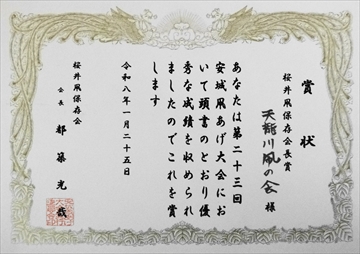 賞状
桜井凧保存会長賞
天龍川凧の会 様
あなたは第二十三回
安城凧あげ大会にお
いて頭書のとおり優
秀な成績を収められ
ましたのでこれを賞
します
令和八年一月二十五日
桜井凧保存会
会長 都築光哉